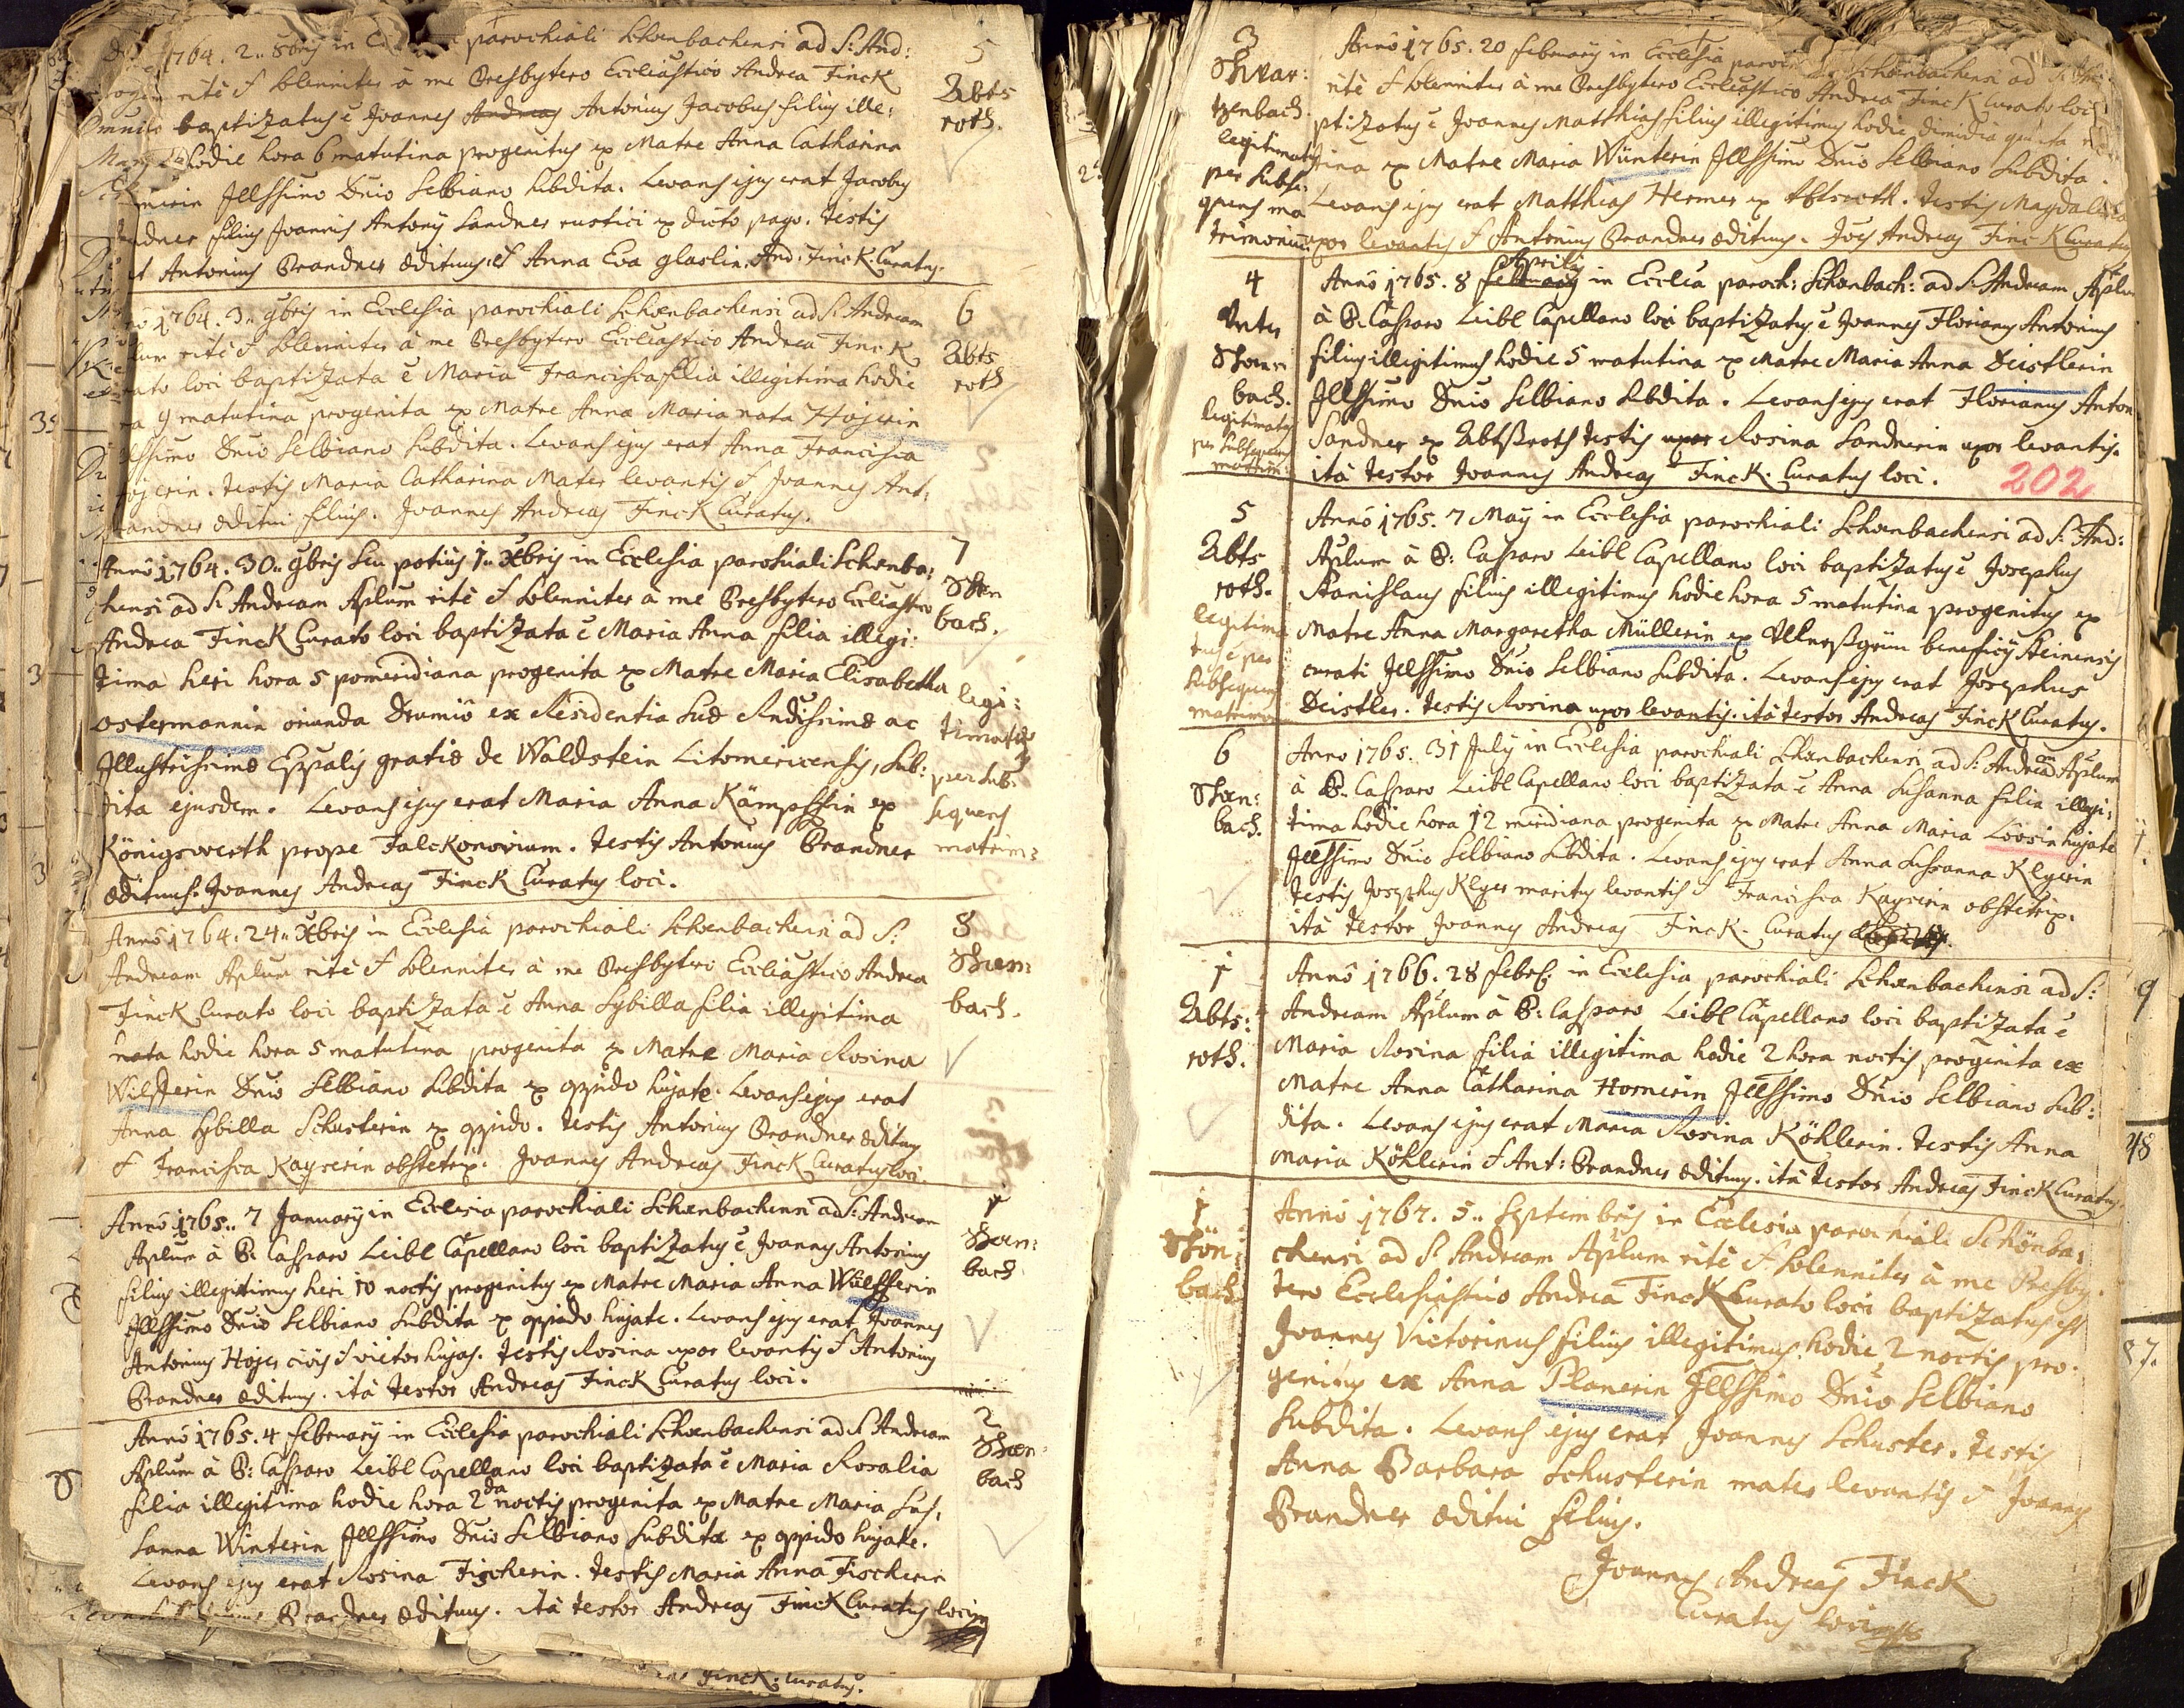 1764. 2.. 8bris in parochiali Schœnbachensi ad S: And:
rité & solenniter à me Presbytero Eccliastico Andrea Finck
baptizatus ē Joannes Andreas Antonius Jacobus filius ille:
hodie hora 6 matutina progenitus ex Matre Anna Catharina
Jllssimo Dnīo Selbiano subdita. Levans ejus erat Jacobus
filius Joannis Antonij Sandner rustici ex dicto pago. Testis
Antonius Brandner ædituus. & Anna Eva glaslin. And: Finck. Curatus.
5
Abts
roth.
1764. 3.. 9bris in Ecclesia parochiali Schœnbachensi ad S: Andream
rité & solenniter à me Presbytero Eccliastico Andrea Finck
loci baptizata ē Maria Francisca filia illegitima hodie
9 matutina progenita ex Matre Anna Maria nata Hojerin
Dnīo Selbiano subdita. Levans ejus erat Anna Francisca
Hojerin. Testis Maria Catharina Mater levantis & Joannes Ant:
Brandner æditui filius. Joannes Andreas Finck Curatus.
6
Abts
roth
Annō 1764. 30.. 9bris seu potius 1.. Xbris in Ecclesia parochiali Schœnba:
chensi ad S: Andream Aplum rité & solenniter à me Presbytero Eccliastico
Andrea Finck Curato loci baptizata ē Maria Anna filia illegi:
tima heri hora 5 pomeridiana progenita ex Matre Maria Elisabetha
ostermannin oriunda Dromiô ex Residentia suæ Rndissimæ ac
Illustrissimæ Eppalis gratiæ de Waldstein Litomericensis, sub:
dita ejusdem. Levans ejus erat Maria Anna Kämpffin ex
Königswerth prope Falckonovium. Testis Antonius Brandner
ædituus. Joannes Andreas Finck Curatus loci.
7
Schœn
bach.
legi:
timata
per sub:
sequens
matrim:
Annō 1764. 24.. Xbris in Ecclesia parochiali Schœnbachensi ad S:
Andream Aplum rité & solenniter à me Presbytero Eccliastico Andrea
Finck Curato loci baptizata ē Anna Sybilla filia illegitima
nata hodie hora 5 matutina progenita ex Matre Maria Rosina
Wilfferin Dnīo Selbiano subdita ex oppido hujate. Levans ejus erat
Anna Sybilla Schusterin ex oppido. Testis Antonius Brandner ædituus
& Francisca Kayserin obstetrix. Joannes Andreas Finck Curatus loci.
8
Schœn:
bach.
Annō 1765.. 7 Januarij in Ecclesia parochiali Schœnbachensi ad S: Andream
Aplum à P: Casparo Leibl Capellano loci baptizatus ē Joannes Antonius
filius illegitimus heri 10 noctis progenitus ex Matre Maria Anna Wülfferin
Jllssimo Dnīo Selbiano subdita ex oppido hujate. Levans ejus erat Joannes
Antonius Hojer civis & vietor hujas. Testis Rosina uxor levantis & Antonius
Brandner ædituus. ità testor Andreas Finck Curatus loci.
1
Schœn:
bach
Annō 1765. 4 februarij in Ecclesia parochiali Schœnbachensi ad S: Andream
Aplum à P: Casparo Leibl Capellano loci baptizata ē Maria Rosalia
filia illegitima hodie hora 2da noctis progenita ex Matre Maria Su,
sanna Winterin Jllssimo Dnīo Selbiano subdita ex oppido hujate.
Levans ejus erat Rosina Fischerin. Testis Maria Anna Fischerin
Brandner ædituus. ità testor Andreas Finck Curatus loci
2
Schœn:
bach
Finck: Curatus.
3
Schwar:
tzenbach.
legitimatus
per subse:
quens ma
trimonium
Annō 1765. 20 februarij in Ecclesia Schœnbachensi ad S:
rité & solenniter à me Presbytero Eccliastico Andrea Finck Curato loci
ptizatus ē Joannes Matthias filius illegitimus hodie dimidia quinta
ex Matre Maria Wünterin Jllssimo Dnīo Selbiano subdita.
Levans ejus erat Matthias Hermer ex Abtsroth. Testis Magdalena
uxor levantis & Antonius Brandner ædituus. Joes Andreas Finck Curatus
4
Unter
Schœn:
bach.
legitimatus
per subsequens
matrim:
Annō 1765. 8 februarij Aprilis in Ecclia paroch: Schœnbach: ad S: Andream Aplum
à P: Casparo Leibl Capellano loci baptizatus ē Joannes Florianus Antonius
filius illegitimus hodie 5 matutina ex Matre Maria Anna Deistlerin
Jllssimo Dnīo Selbiano subdita. Levans ejus erat Florianus Anton
Sandner ex Abtßroth testis uxor Rosina Sandnerin uxor levantis.
ità testor Joannes Andreas Finck. Curatus loci.
202
5
Abts
roth.
legitima
tus ē per
subsequens
matrimon
Annō 1765. 7 Maij in Ecclesia parochiali Schœnbachensi ad S: And:
Aplum à P: Casparo Leibl Capellano loci baptizatus ē Josephus
Stanislaus filius illegitimus hodie hora 5 matutina progenitus ex
Matre Anna Margaretha Müllerin ex Ullersßgrün beneficij Steinensis
curati Jllssimo Dnīo Selbiano subdita. Levans ejus erat Josephus
Deistler. Testis Rosina uxor levantis. ità testor Andreas Finck Curatus.
6
Schœn:
bach.
Anno 1765. 31 Julij in Ecclesia parochiali Schœnbachensi ad S: Andream Aplum
à P. Casparo Leibl Capellano loci baptizata ē Anna Susanna filia illegi:
tima hodie hora 12 meridiana progenita ex Matre Anna Maria Loosin hujate
Jllssimo Dnīo Selbiano subdita. Levans ejus erat Anna Susanna Klyerin
Testis Josephus Klyer maritus levantis & Francisca Kayserin obstetrix.
ità testor Joannes Andreas Finck. Curatus
1
Abts:
roth.
Annō 1766. 28 febr: in Ecclesia parochiali Schœnbachensi ad S:
Andream Aplum à P: Casparo Leibl Capellano loci baptizata ē
Maria Rosina filia illegitima hodie 2 hora noctis progenita ex
Matre Anna Catharina Hornerin Jllssimo Dnīo Selbiano sub:
dita. Levans ejus erat Maria Rosina Köhlerin. Testis Anna
Maria Köhlerin & Ant: Brandner ædituus. ità testor Andreas Finck Curatus.
1
Schön:
bach
Annō 1767. 5.. Septembris in Ecclesia parochiali Schönba:
chensi ad S: Andream Aplum rité & solenniter à me Presby:
tero Ecclesiastico Andrea Finck Curato loci baptizatus est
Joannes Victorinus filius illegitimus hodie 2 noctis pro:
genitus ex Anna Planerin Jllssimo Dnīo Selbiano
subdita. Levans ejus erat Joannes Schuster. Testis
Anna Barbara Schusterin mater levantis & Joannes
Brandner æditui filius.
Joannes Andreas Finck
Curatus loci
9
48
87.